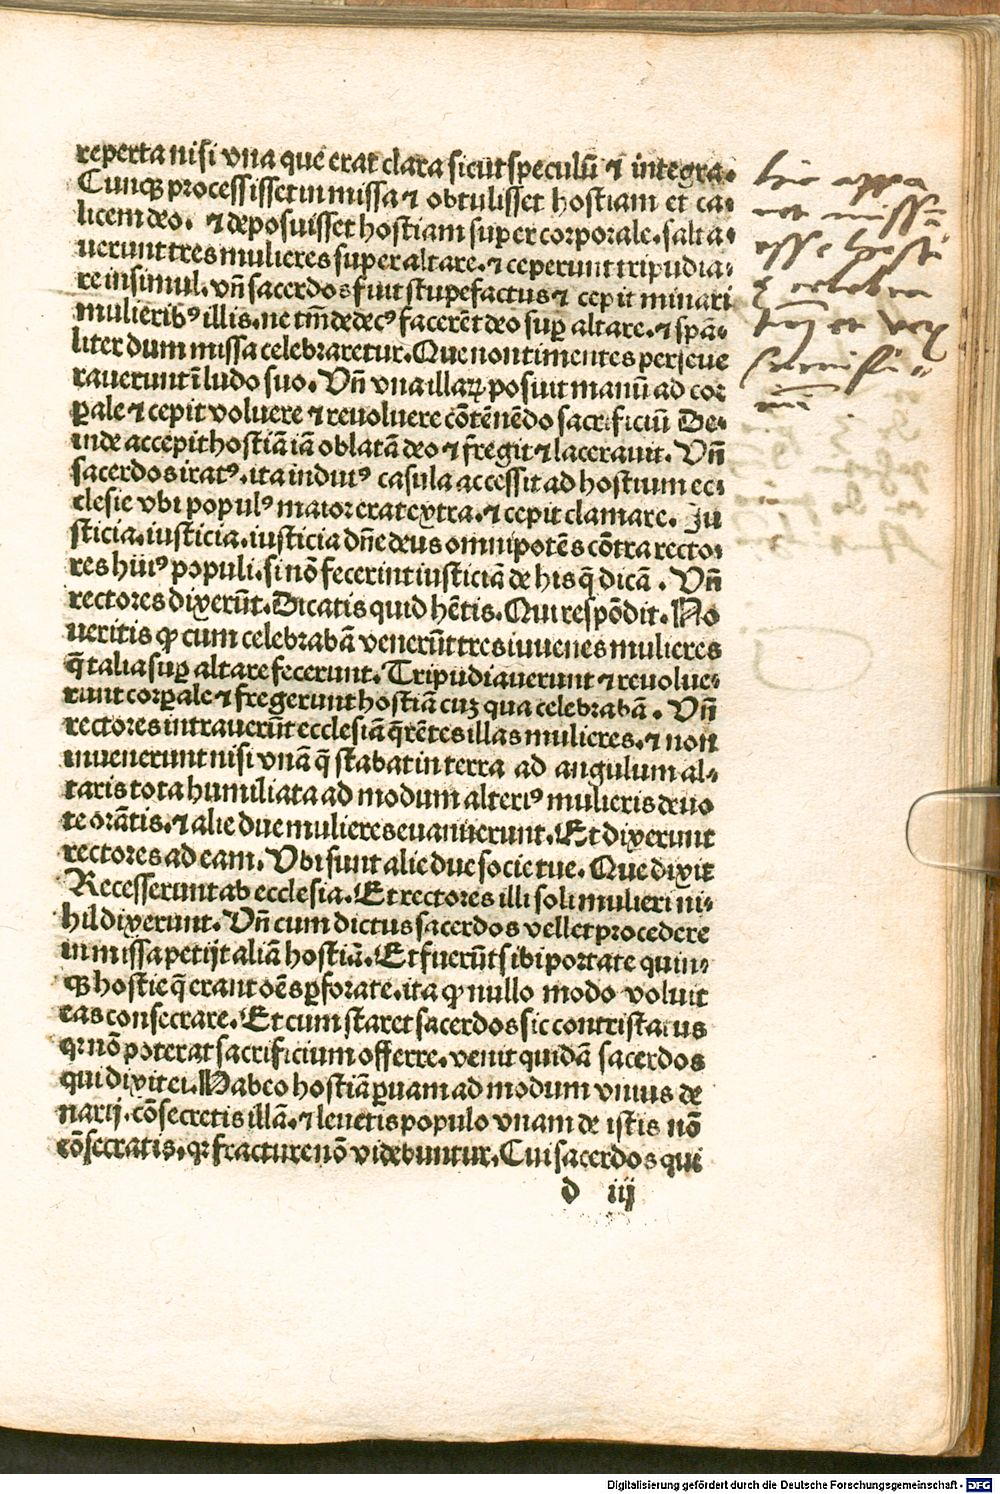 reperta nisi vna que erat clara sicut speculū ⁊ integra.
Cunqꝫ processisset in missa ⁊ obtulisset hostiam et ca⸗
licem deo. ⁊ deposuisset hostiam super corporale. salta⸗
uerunt tres mulieres super altare. ⁊ ceperunt tripudia⸗
re insimul. vn̄ sacerdos fuit stupefactus ⁊ cepit minari
mulieribꝰ illis. ne tm̄ dedecꝰ facerēt deo suꝑ altare. ⁊ spā⸗
liter dum missa celebraretur. Que non timentes perseue
rauerunt ī ludo suo. Vn̄ vna illaꝝ posuit manū ad cor
ꝑale ⁊ cepit voluere ⁊ reuoluere cōtēnēdo sacrificiū De⸗
inde accepit hostiā iā oblatā deo ⁊ fregit ⁊ lacerauit. Vn̄
sacerdos iratꝰ. ita indutꝰ casula accessit ad hostium ec⸗
clesie vbi populꝰ maior erat extra. ⁊ cepit clamare. Iu
sticia. iusticia. iusticia dn̄e deus omnipotēs cōtra recto⸗
res huiꝰ populi. si nō fecerint iusticiā de his q̄ dicā. Vn̄
rectores dixerūt. Dicatis quid hētis. Qui respōdit. No
ueritis ꝙ cum celebrabā venerūt tres iuuenes mulieres
q̄ talia suꝑ altare fecerunt. Tripudiauerunt ⁊ reuolue⸗
runt corꝑale ⁊ fregerunt hostiā cuꝫ qua celebrabā. Vn̄
rectores intrauerūt ecclesiā q̄rētes illas mulieres. ⁊ non
inuenerunt nisi vnā q̄ stabat in terra ad angulum al⸗
taris tota humiliata ad modum alteriꝰ mulieris deuo
te orātis. ⁊ alie due mulieres euanuerunt. Et dixerunt
rectores ad eam. Vbi sunt alie due socie tue. Que dixit
Recesserunt ab ecclesia. Et rectores illi soli mulieri ni⸗
hil dixerunt. Vn̄ cum dictus sacerdos vellet procedere
in missa petijt aliā hostiā. Et fuerūt sibi portate quin⸗
qꝫ hostie q̄ erant oēs ꝑforate. ita ꝙ nullo modo voluit
eas consecrare. Et cum staret sacerdos sic contristatus
qꝛ nō poterat sacrificium offerre. venit quidā sacerdos
qui dixit ei. Habeo hostiā ꝑuam ad modum vnius de
narij. cōsecretis illā. ⁊ leuetis populo vnam de istis nō
cōsecratis. qꝛ fracture nō videbuntur. Cui sacerdos qui
d iij
hic appa
ret missā
esse hosti
et
et
Digitalisierung gefördert durch die Deutsche Forschungsgemeinschaft - DFG